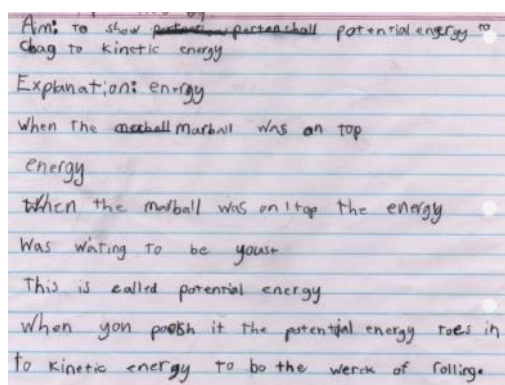 Aim: To show partenchall potential energy to
chag to kinetic energy
Explanation: energy
When The marball was on top
energy
When the marball was on top the energy
was wating to be youst
This is called potential energy
When you poosh it the potential energy toes in
to kinetic energy to bo the werck of rolling.